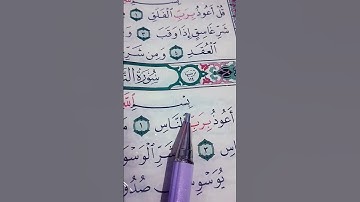 قُلْ أَعُوذُ بِرَبِّ الْفَلَقِ ١
شَرِّ غَاسِقٍ إِذَا وَقَبَ ٣
الْعُقَدِ ٤ وَمِن شَرِّ
سُورَةُ
بِسْمِ اللَّهِ
أَعُوذُ بِرَبِّ النَّاسِ ١
٣ شَرِّ الْوَسْ
يُوَسْوِسُ صُدُ